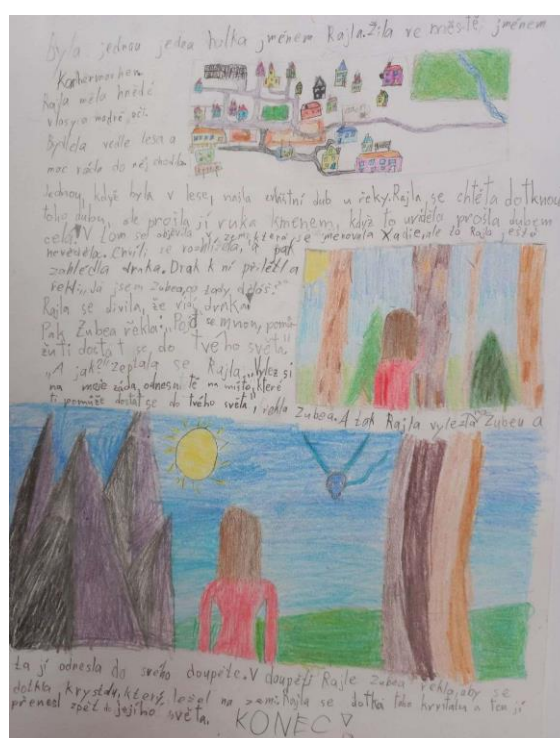 Byla jednou jedna holka jménem Rajla. Žila ve městě jménem
Rajla měla hnědé
vlasy a modré oči.
Bydlela vedle lesa a
moc ráda do něj chodila
Jednou, když byla v lese, našla zvláštní dub u řeky. Rajla se chtěla dotknou
toho dubu, ale prošla jí ruka kmenem, když to uviděla prošla dubem
celá. V tom se objevila v zemi která se jmenovala Xadie, ale to Rajla ještě
nevěděla. Chvíli se rozhlížela, a pak
zahlédla draka. Drak k ní přilétl a
řekl: "Já jsem Zubea, co tady děláš?"
Rajla se divila, že vidí draka
Pak Zubea řekla: "Pojď se mnou, pomů-
žu ti dostat se do tvého světa."
"A jak?" zeptala se Rajla. "Vylez si
na moje záda, odnesu tě na místo, které
ti pomůže dostat se do tvého světa", řekla Zubea. A tak Rajla vylezla na Zubeu a
ta jí odnesla do svého doupěte. V doupěti Rajle Zubea řekla, aby se
dotkla krystalu, který ležel na zemi. Rajla se dotkla toho krystalu a ten jí
přenesl zpět do jejího světa. KONEC!